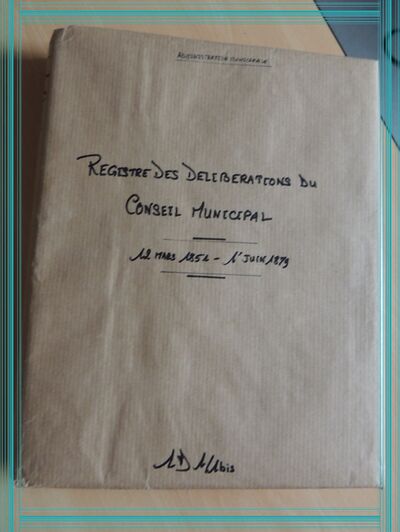 ADMINISTRATION MUNICIPALE
REGISTRE DES DELIBERATIONS DU
CONSEIL MUNICIPAL
12 MARS 1851 - 1er JUIN 1879